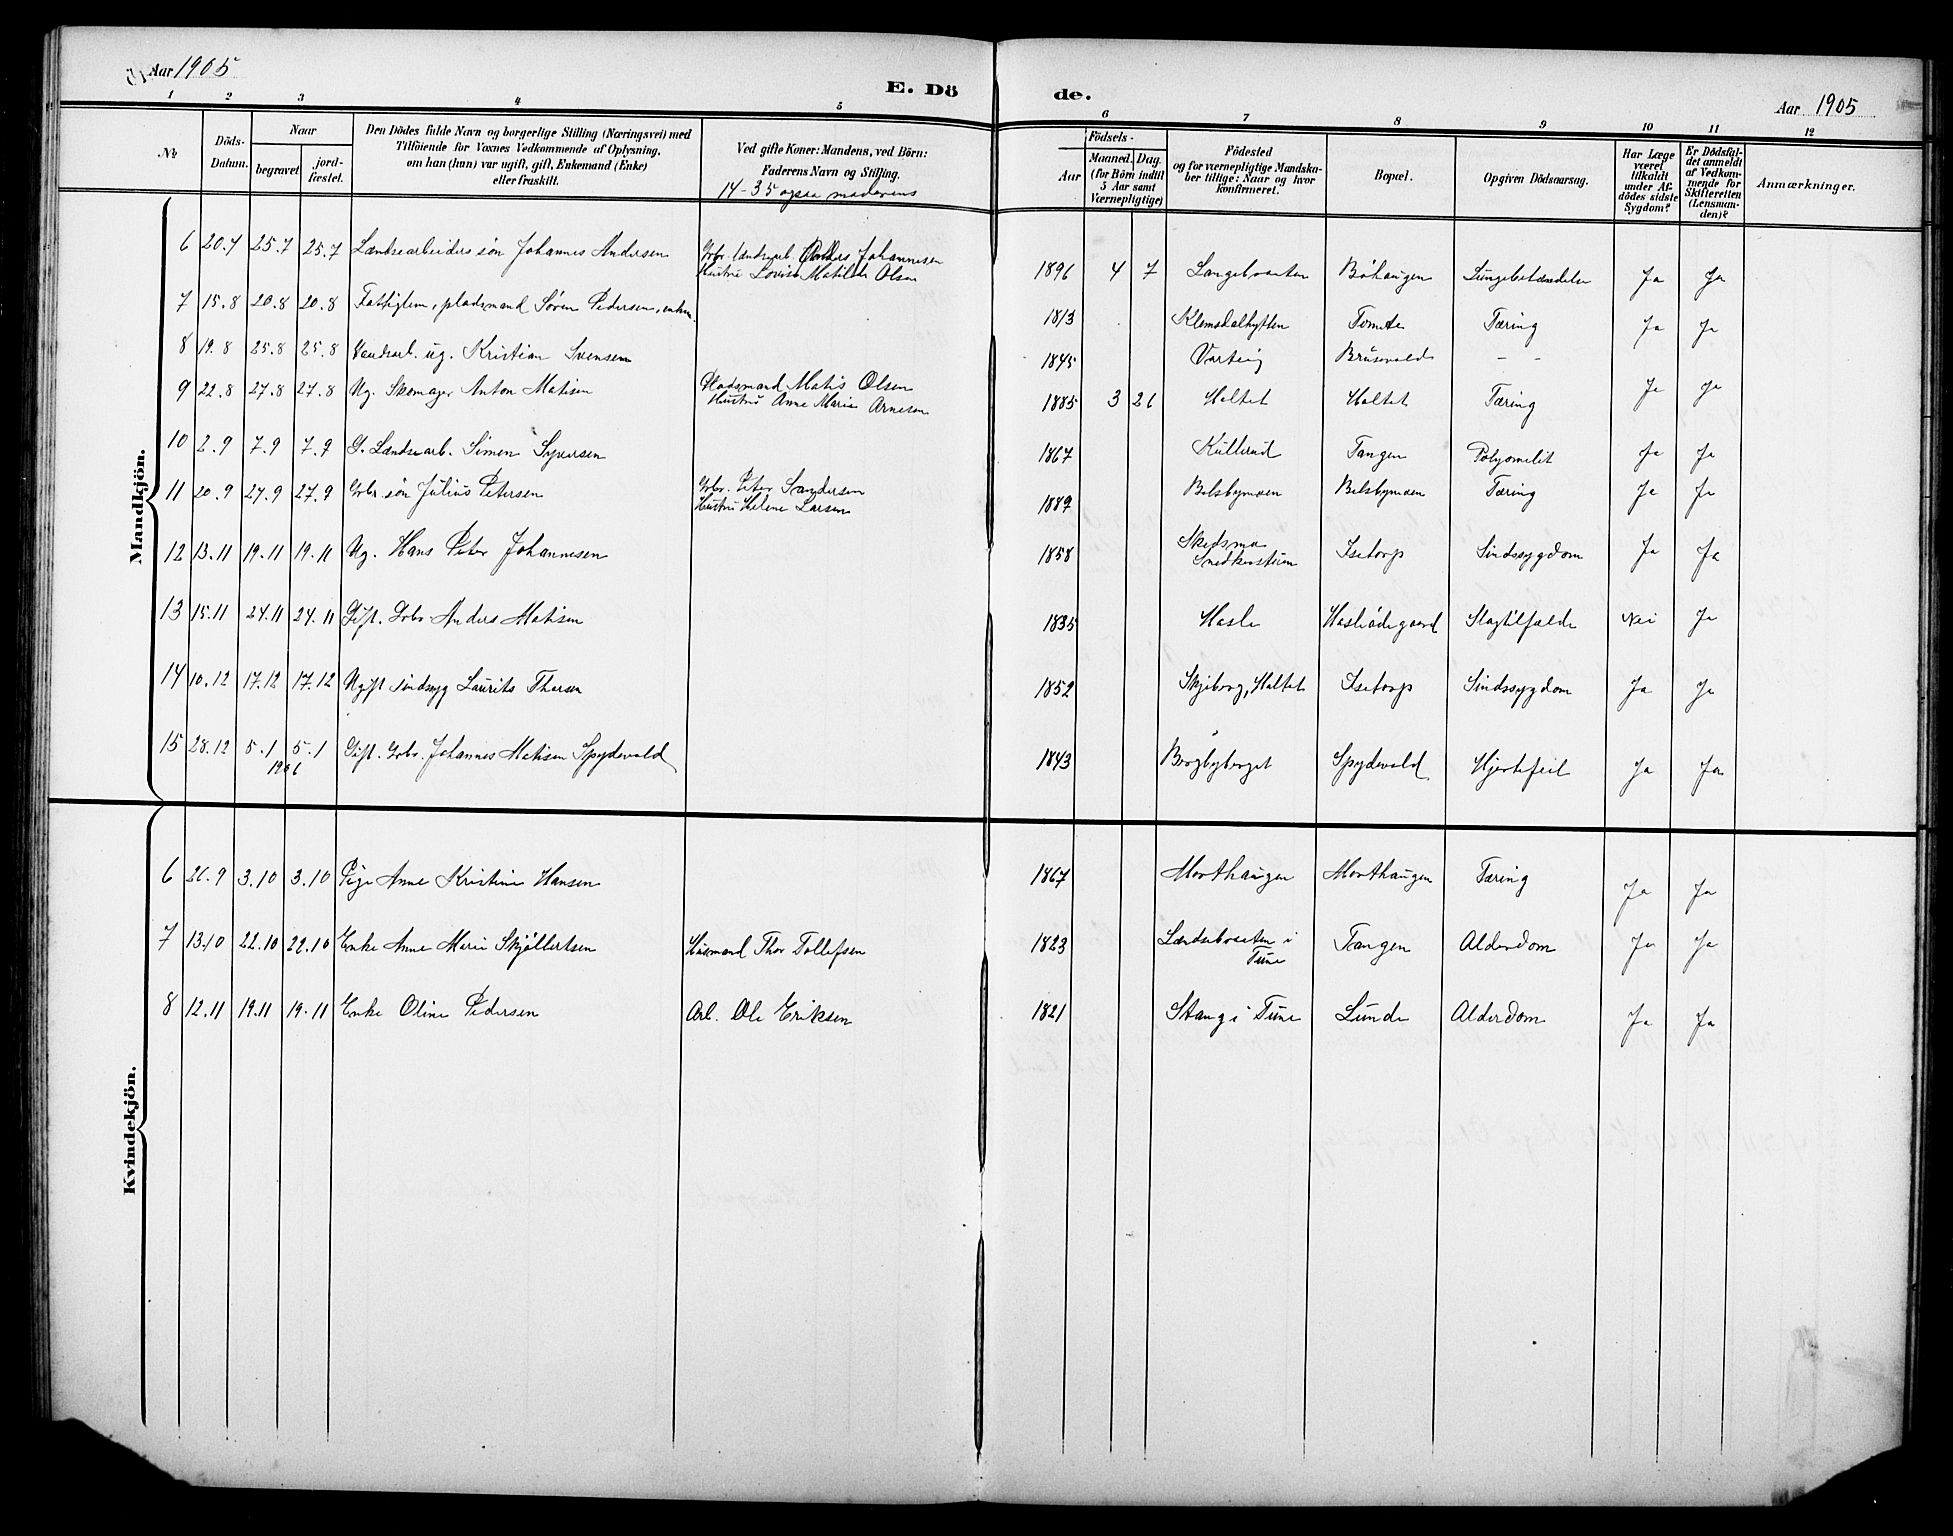 Aar 1905
E. Dö de.
Aar 1905
1 2 3 4 5 6 7 8 9 10 11 12
No
Döds-Datum.
Naar
begravet
jordfæstet.
Den Dödes fulde Navn og borgerlige Stilling (Næringsvei) med
Tilföiende for Voxnes Vedkommende af Oplysning,
om han (hun) var ugift, gift, Enkemand (Enke)
eller fraskilt.
Ved gifte Koner: Mandens, ved Börn:
Faderens Navn og Stilling.
14-35 ogsaa moderens
Födsels-
Aar
Maaned. Dag.
(for Börn indtil
5 Aar samt
Værnepligtige)
Födested
og for værnepligtige Mandska-
ber tillige: Naar og hvor
konfirmeret.
Bopæl.
Opgiven Dödsaarsag.
Har Læge
været
tilkaldt
under Af-
dödes sidste
Sygdom?
Er Dödsfal-
det anmeldt
af Vedkom-
mende for
Skifteretten
(Lensman-
den)?
Anmærkninger.
Mandkjön.
6 20.7 25.7 25.7 Lændsearbeiders søn Johannes Andersen Anders Johannesen
Hustru Lovise Matilde Olsen 1896 4 7 Langebraaten Böhaugen Lungebetændelse Ja Ja
7 15.8 20.8 20.8 Fattiglem, pladsmand Søren Pedersen, enkem. 1813 Klemsdalhytten Tomte Tæring Ja Ja
8 19.8 25.8 25.8 ug. Kristian Svensen 1845 Varteig Brusevald - -
9 22.8 27.8 27.8 Ug. Skomager Anton Matisen Pladsmand Matis Olsen
Hustru Anne Marie Arnesen 1885 3 26 Haltet Haltet Tæring Ja Ja
10 2.9 7.9 7.9 G. Lændsearb. Simon Syversen 1867 Kullerud Tangen Polyomelit Ja Ja
11 20.9 27.9 27.9 Gbr. søn Julius Petersen Gbr. Peter Sandersen
Hustru Helene Larsen 1889 Belsbymoen Belsbymoen Tæring Ja Ja
12 13.11 19.11 19.11 Ug. Hans Peter Johannesen 1858 Skedsmo
Isetorp Sindssygdom Ja Ja
13 15.11 24.11 24.11 Gift. Gbr. Anders Matisen 1835 Hasle Hasleödegaard Slagtilfælde Nei Ja
14 10.12 17.12 17.12 Ugift sindsyg Laurits Thorsen 1852 Skjeborg, Haltet Isetorp Sindssygdom Ja Ja
15 28.12 5.1 5.1 Gift. Gbr. Johannes Matisen Spydevold
1906
1843 Brogbyberget Spydevold Hjertefeil Ja Ja
Kvindekjön.
6 26.9 3.10 3.10 Pige Anne Kristine Hansen 1867 Morthaugen Morthaugen Tæring Ja Ja
7 13.10 22.10 22.10 Enke Anne Marie Skjöllertsen Husmand Thor Tollefsen 1823 Lændsebraaten i
Tune Tangen Alderdom Ja Ja
8 12.11 19.11 19.11 Enke Oline Pedersen Arb. Ole Eriksen 1821 Stang i Tune Lunde Alderdom Ja Ja